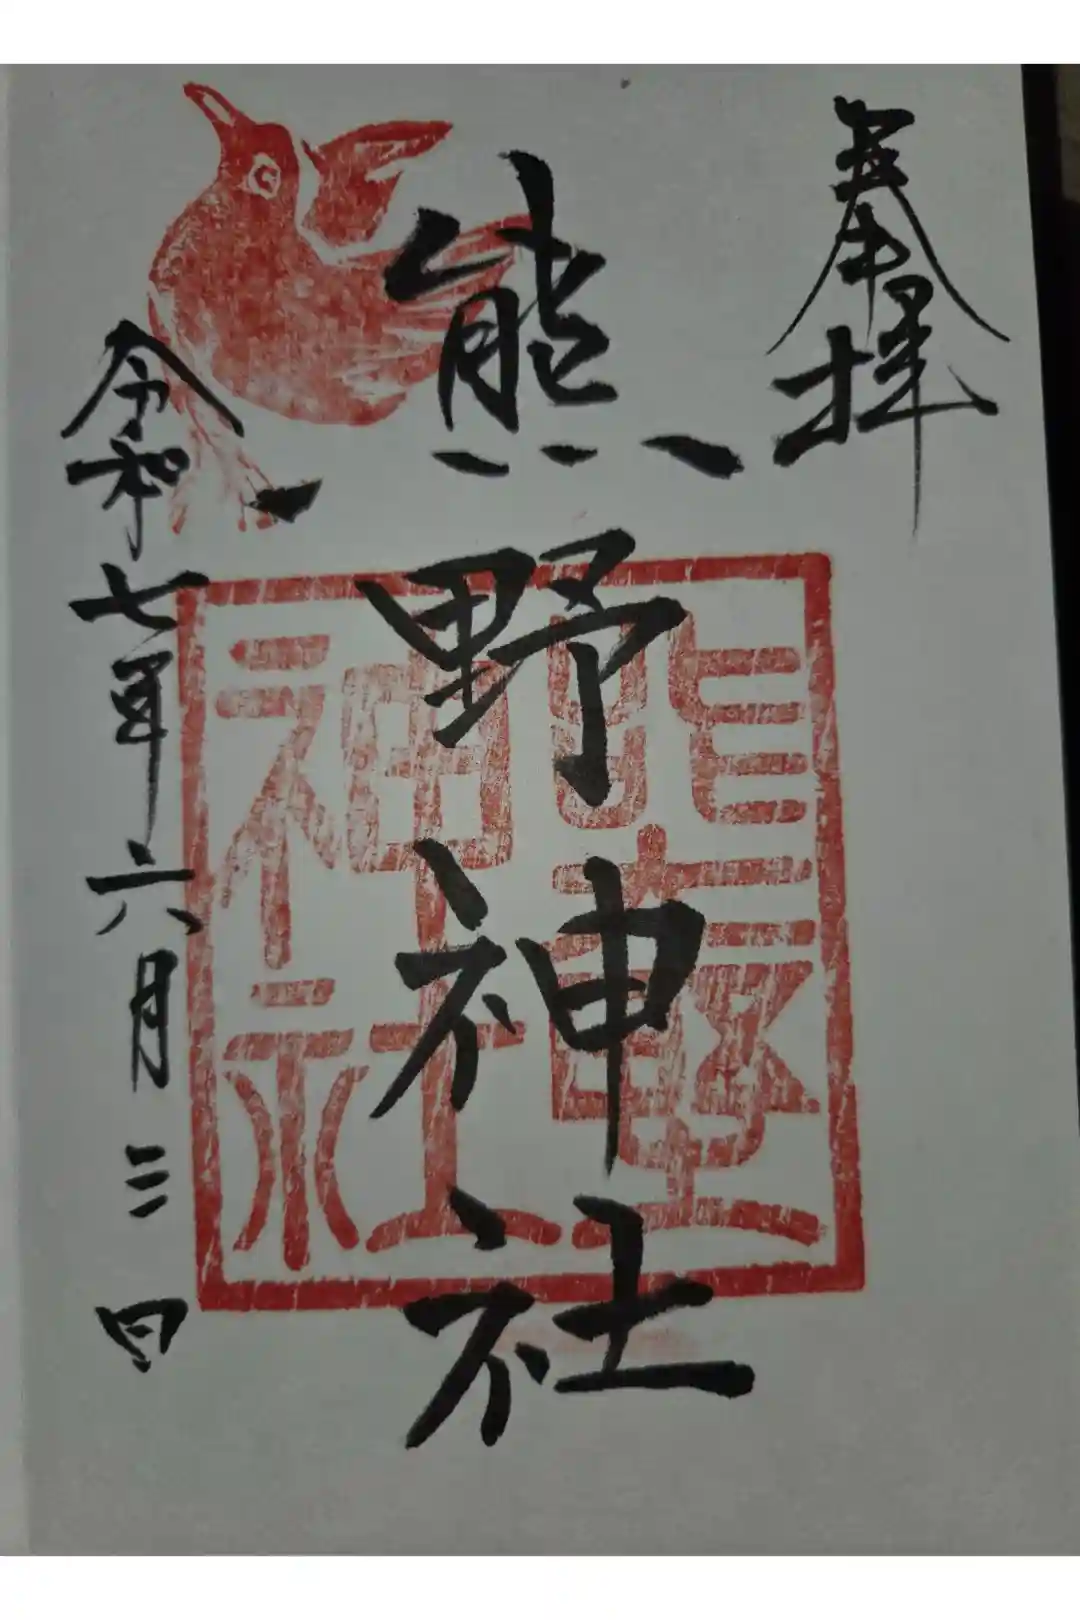 奉拝
熊野神社
熊野
神社
令和七年六月三日